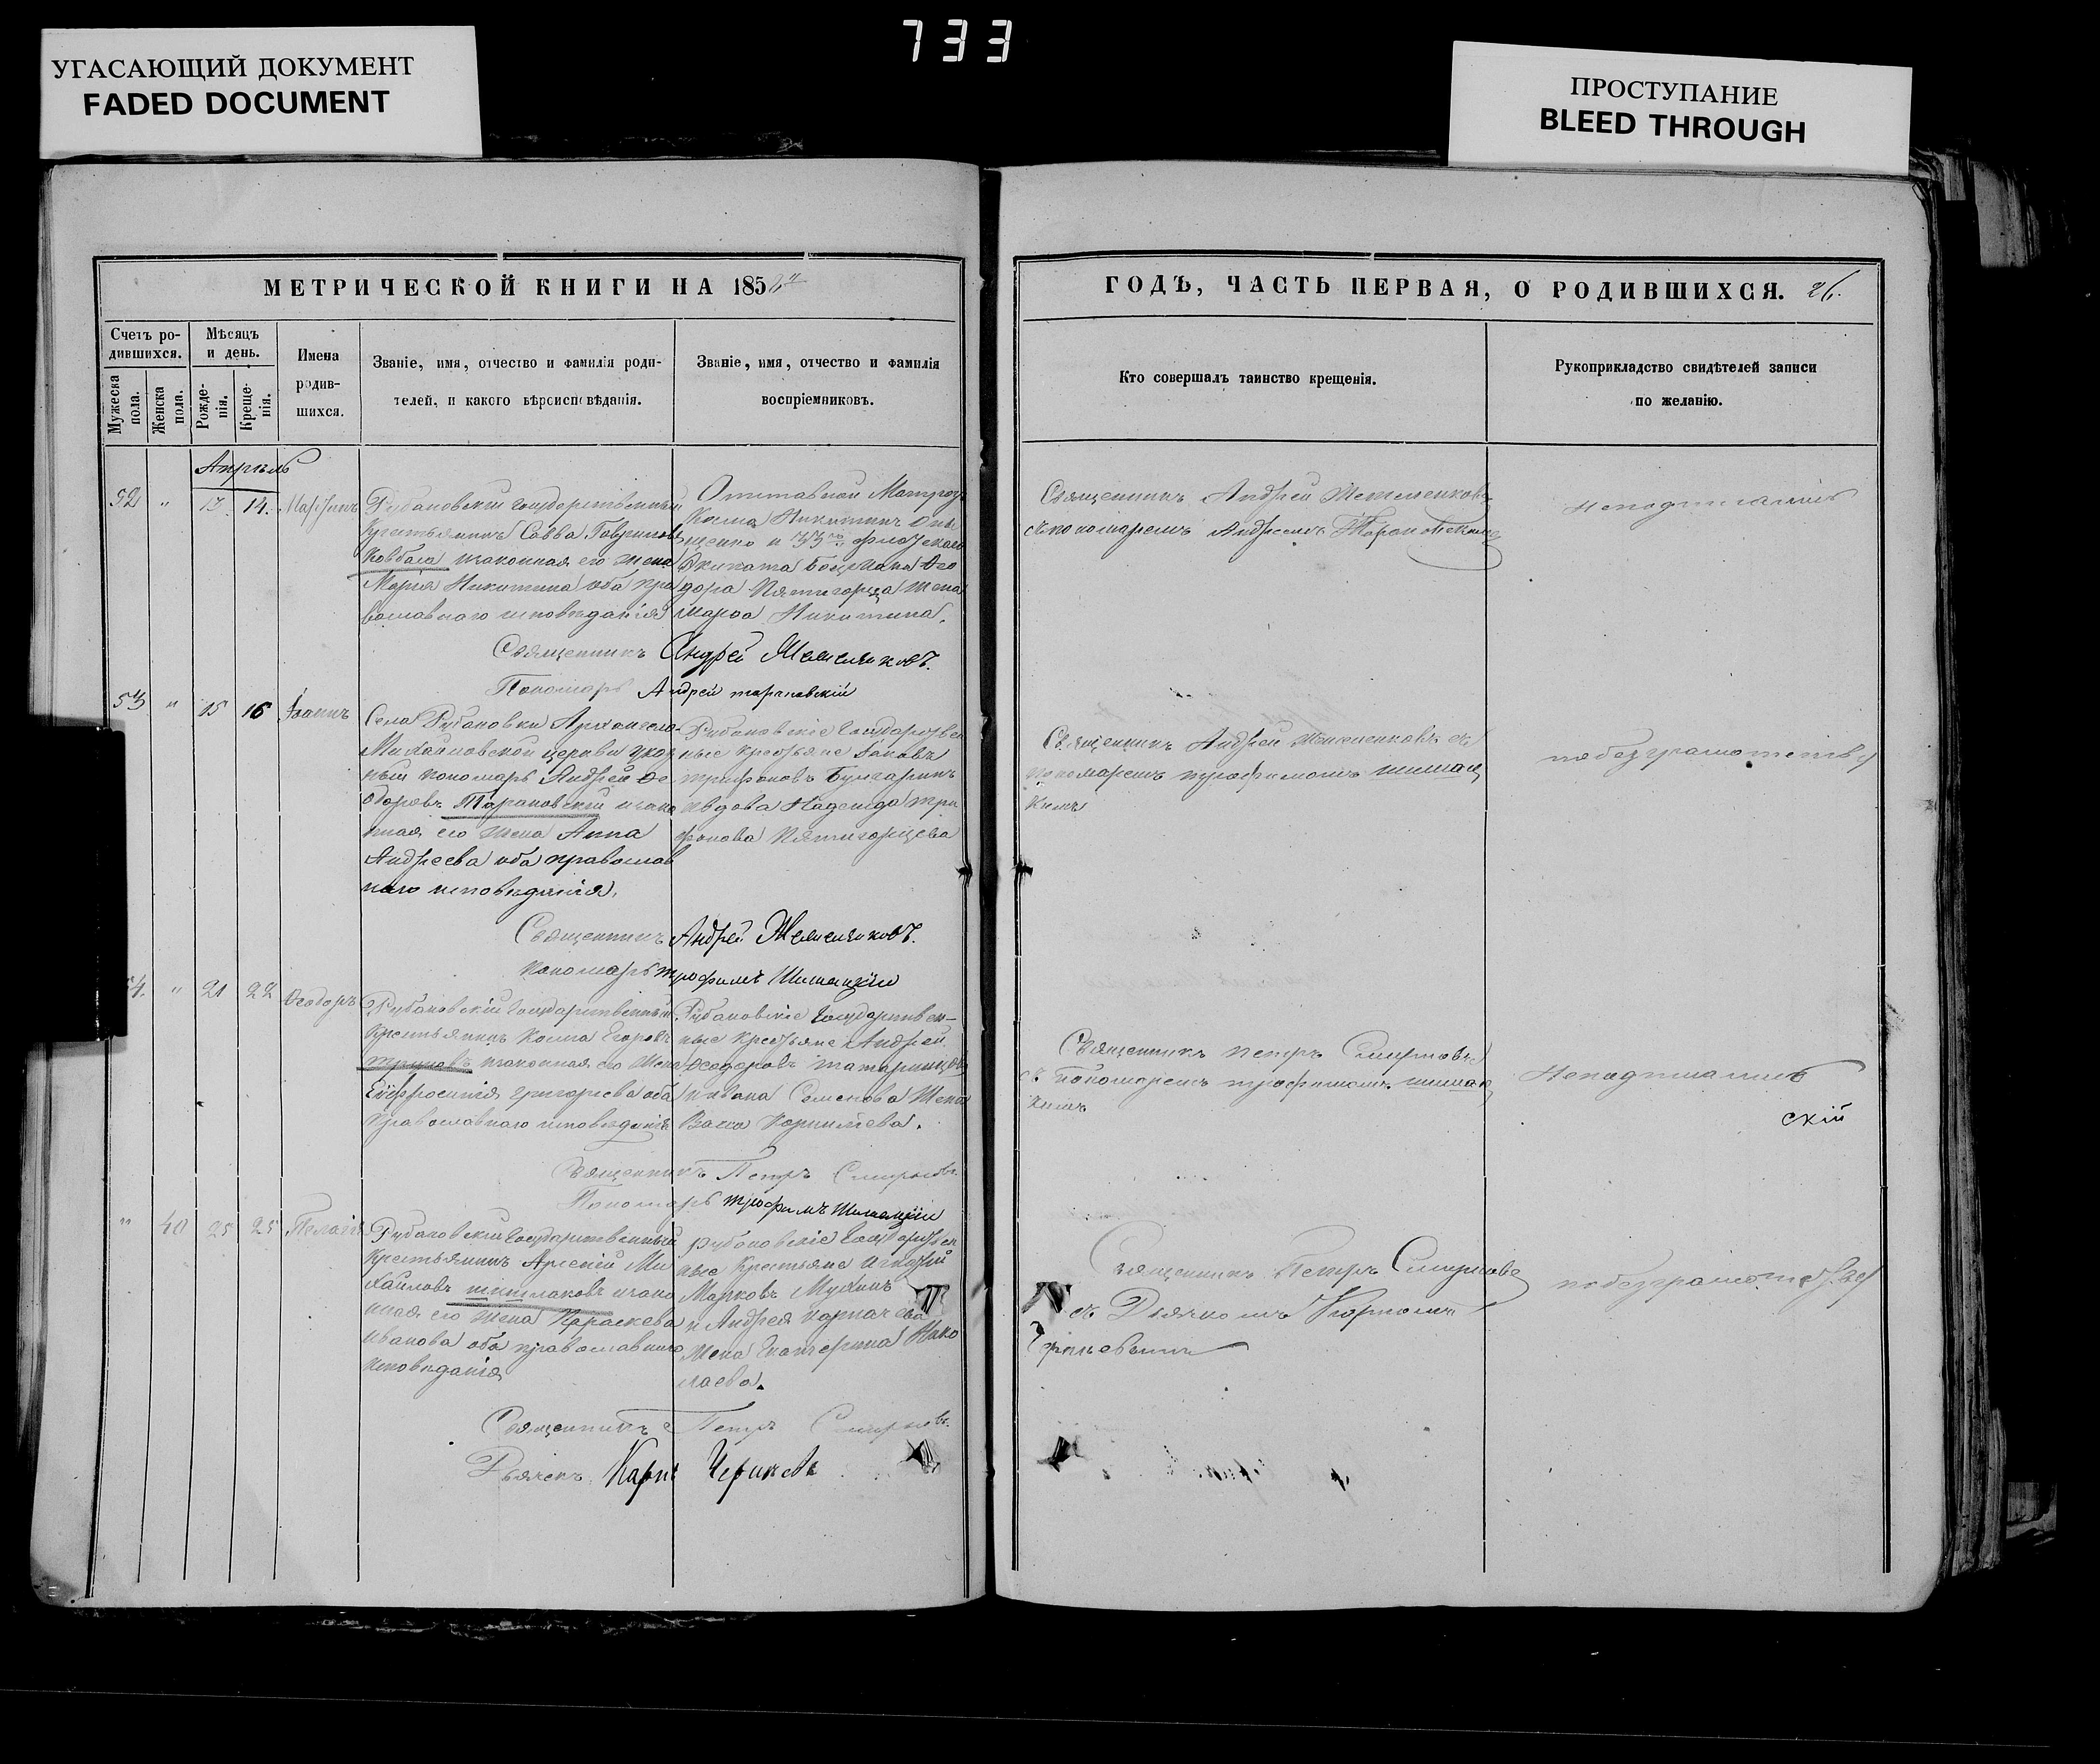 733
УГАСАЮЩИЙ ДОКУМЕНТ
FADED DOCUMENT
ПРОСТУПАНИЕ
BLEED THROUGH
МЕТРИЧЕСКОЙ КНИГИ НА 185
Счетъ ро-
дившихся.
Мужеска
пола.
Женска
пола.
Мѣсяцъ
и день.
Рожде-
нія.
Креще-
нія.
Имена
родив-
шихся.
Званіе, имя, отчество и фамилія роди-
телей, и какого вѣроисповѣданія.
Званіе, имя, отчество и фамилія
воспріемниковъ.
Апрѣль
52 " 13. 14.
Рубановскій государственный
крестьянинъ Савва
законная его жена
Марія Никитина оба пра
вославнаго исповѣданія
Отставной Матрозъ
Косма Никитинъ
щенко и 33го флотскаго
Экипажа
дора Пятигорца жена
Марѳа Никитина.
Священникъ Андрей
Пономарь Андрей тарановскій
53 " 15 16 Іоаннъ
Села Рубановки Архангело-
Михайловской церкви указ
ный пономарь Андрей Ѳе
одоровъ Тарановскій и зако
нная его жена Анна
Андреева оба православ
наго исповѣданія.
Рубановскіе Государствен
ные крестьяне Іаковъ
трифоновъ Бунгаринъ
и вдова Надежда три
фонова Пятигорцева
Священникъ Андрей
пономарь трофимъ Шишацкій
4. " 21 22 Ѳеодоръ
Рубановскій Государственный
Крестьянинъ Косма Егоровъ
законная его жена
Евфросинія григорьева оба
Православнаго исповѣданія
Рубановскіе Государствен-
ные крестьяне Андрей
Ѳеодоровъ
и ивана Семенова жена
Васса Корнилева.
Священникъ Петръ Смирновъ
Пономарь трофимъ Шишацкій
" 40 25 25 Пелагія
Рубановскій Государственный
Крестьянинъ Арсеній Ми
хайловъ шишлаковъ и зако
нная его жена Параскева
иванова оба православнаго
исповѣданія
рубановскіе Государствен
ные Крестьяне Игнатій
Марковъ Мухинъ
и Андрея
жена Екатерина Нико
лаева.
Священникъ Петръ Смирновъ
Дьячекъ Карпъ
ГОДЪ, ЧАСТЬ ПЕРВАЯ, О РОДИВШИХСЯ. 26.
Кто совершалъ таинство крещенія.
Рукоприкладство свидѣтелей записи
по желанію.
Священникъ Андрей
съ пономаремъ Андреемъ Тарановскимъ
Неподписались
Священникъ Андрей
пономаремъ трофимомъ шишац
кимъ
по безграмотству
Священникъ петръ Смирновъ
съ Пономаремъ трофимомъ шишац
кимъ
Неподписались
скій
Священникъ Петръ Смирновъ
съ Дьячкомъ Карпомъ
по безграмотству